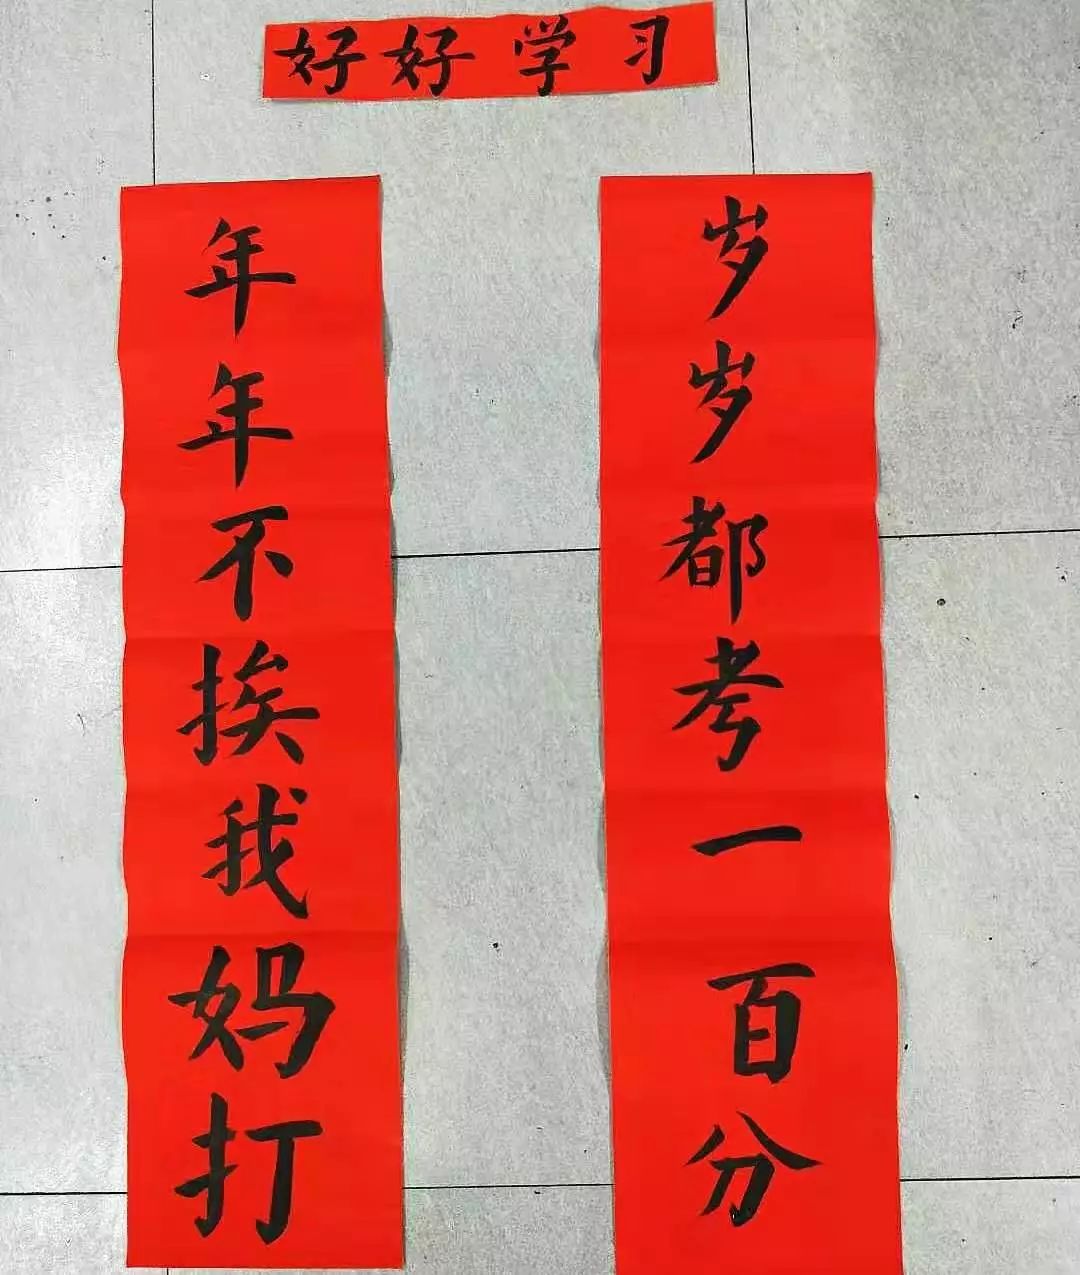 好好学习
岁岁都考一百分
年年不挨我妈打